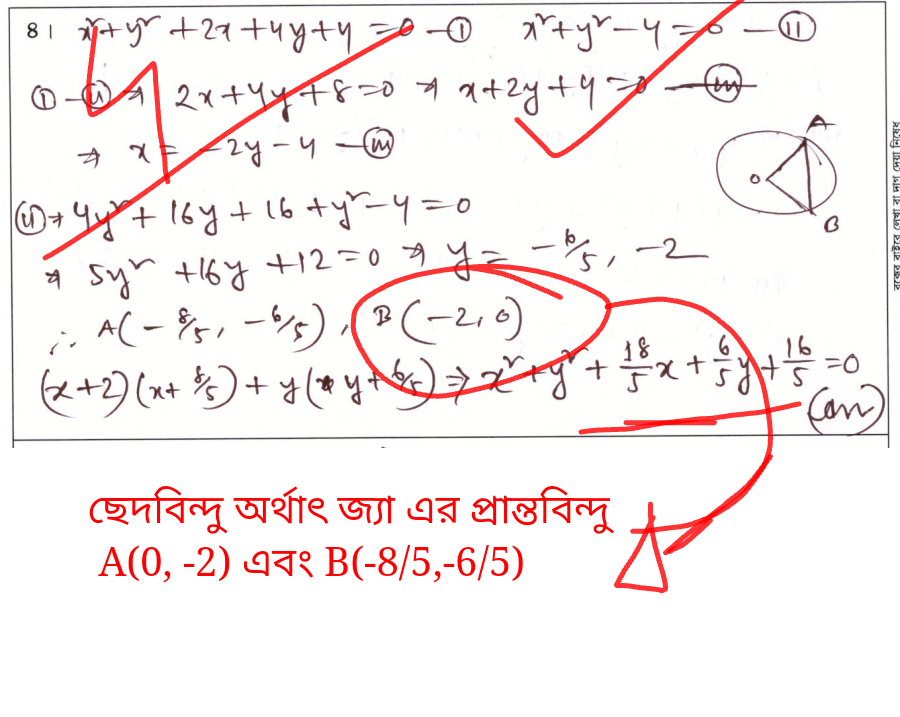 8।
x²+y²+2x+4y+4=0 —(I) x²+y²-4=0 —(II)
(I)-(II) ⇒ 2x+4y+8=0 ⇒ x+2y+4=0 —(III)
⇒ x = -2y-4 —(III)
(II)⇒ 4y²+16y+16+y²-4=0
⇒ 5y²+16y+12=0 ⇒ y = -6/5, -2
∴ A(-8/5, -6/5), B(-2,0)
(x+2)(x+8/5)+y(y+6/5) ⇒ x²+y²+18/5x+6/5y+16/5=0
(Ans)
A
O
B
বক্সের বাইরে লেখা বা দাগ দেয়া নিষেধ
ছেদবিন্দু অর্থাৎ জ্যা এর প্রান্তবিন্দু
A(0, -2) এবং B(-8/5,-6/5)